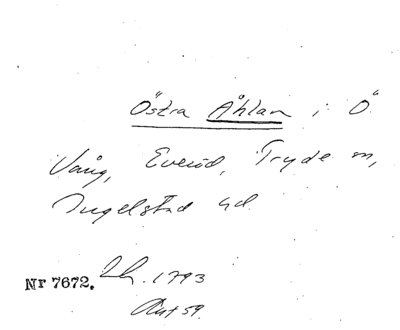 Östra Åhlan i Ö
Vång, Everöd, Tryde m,
Ingelstad hd
Nr 7672. 1793
Akt 59.